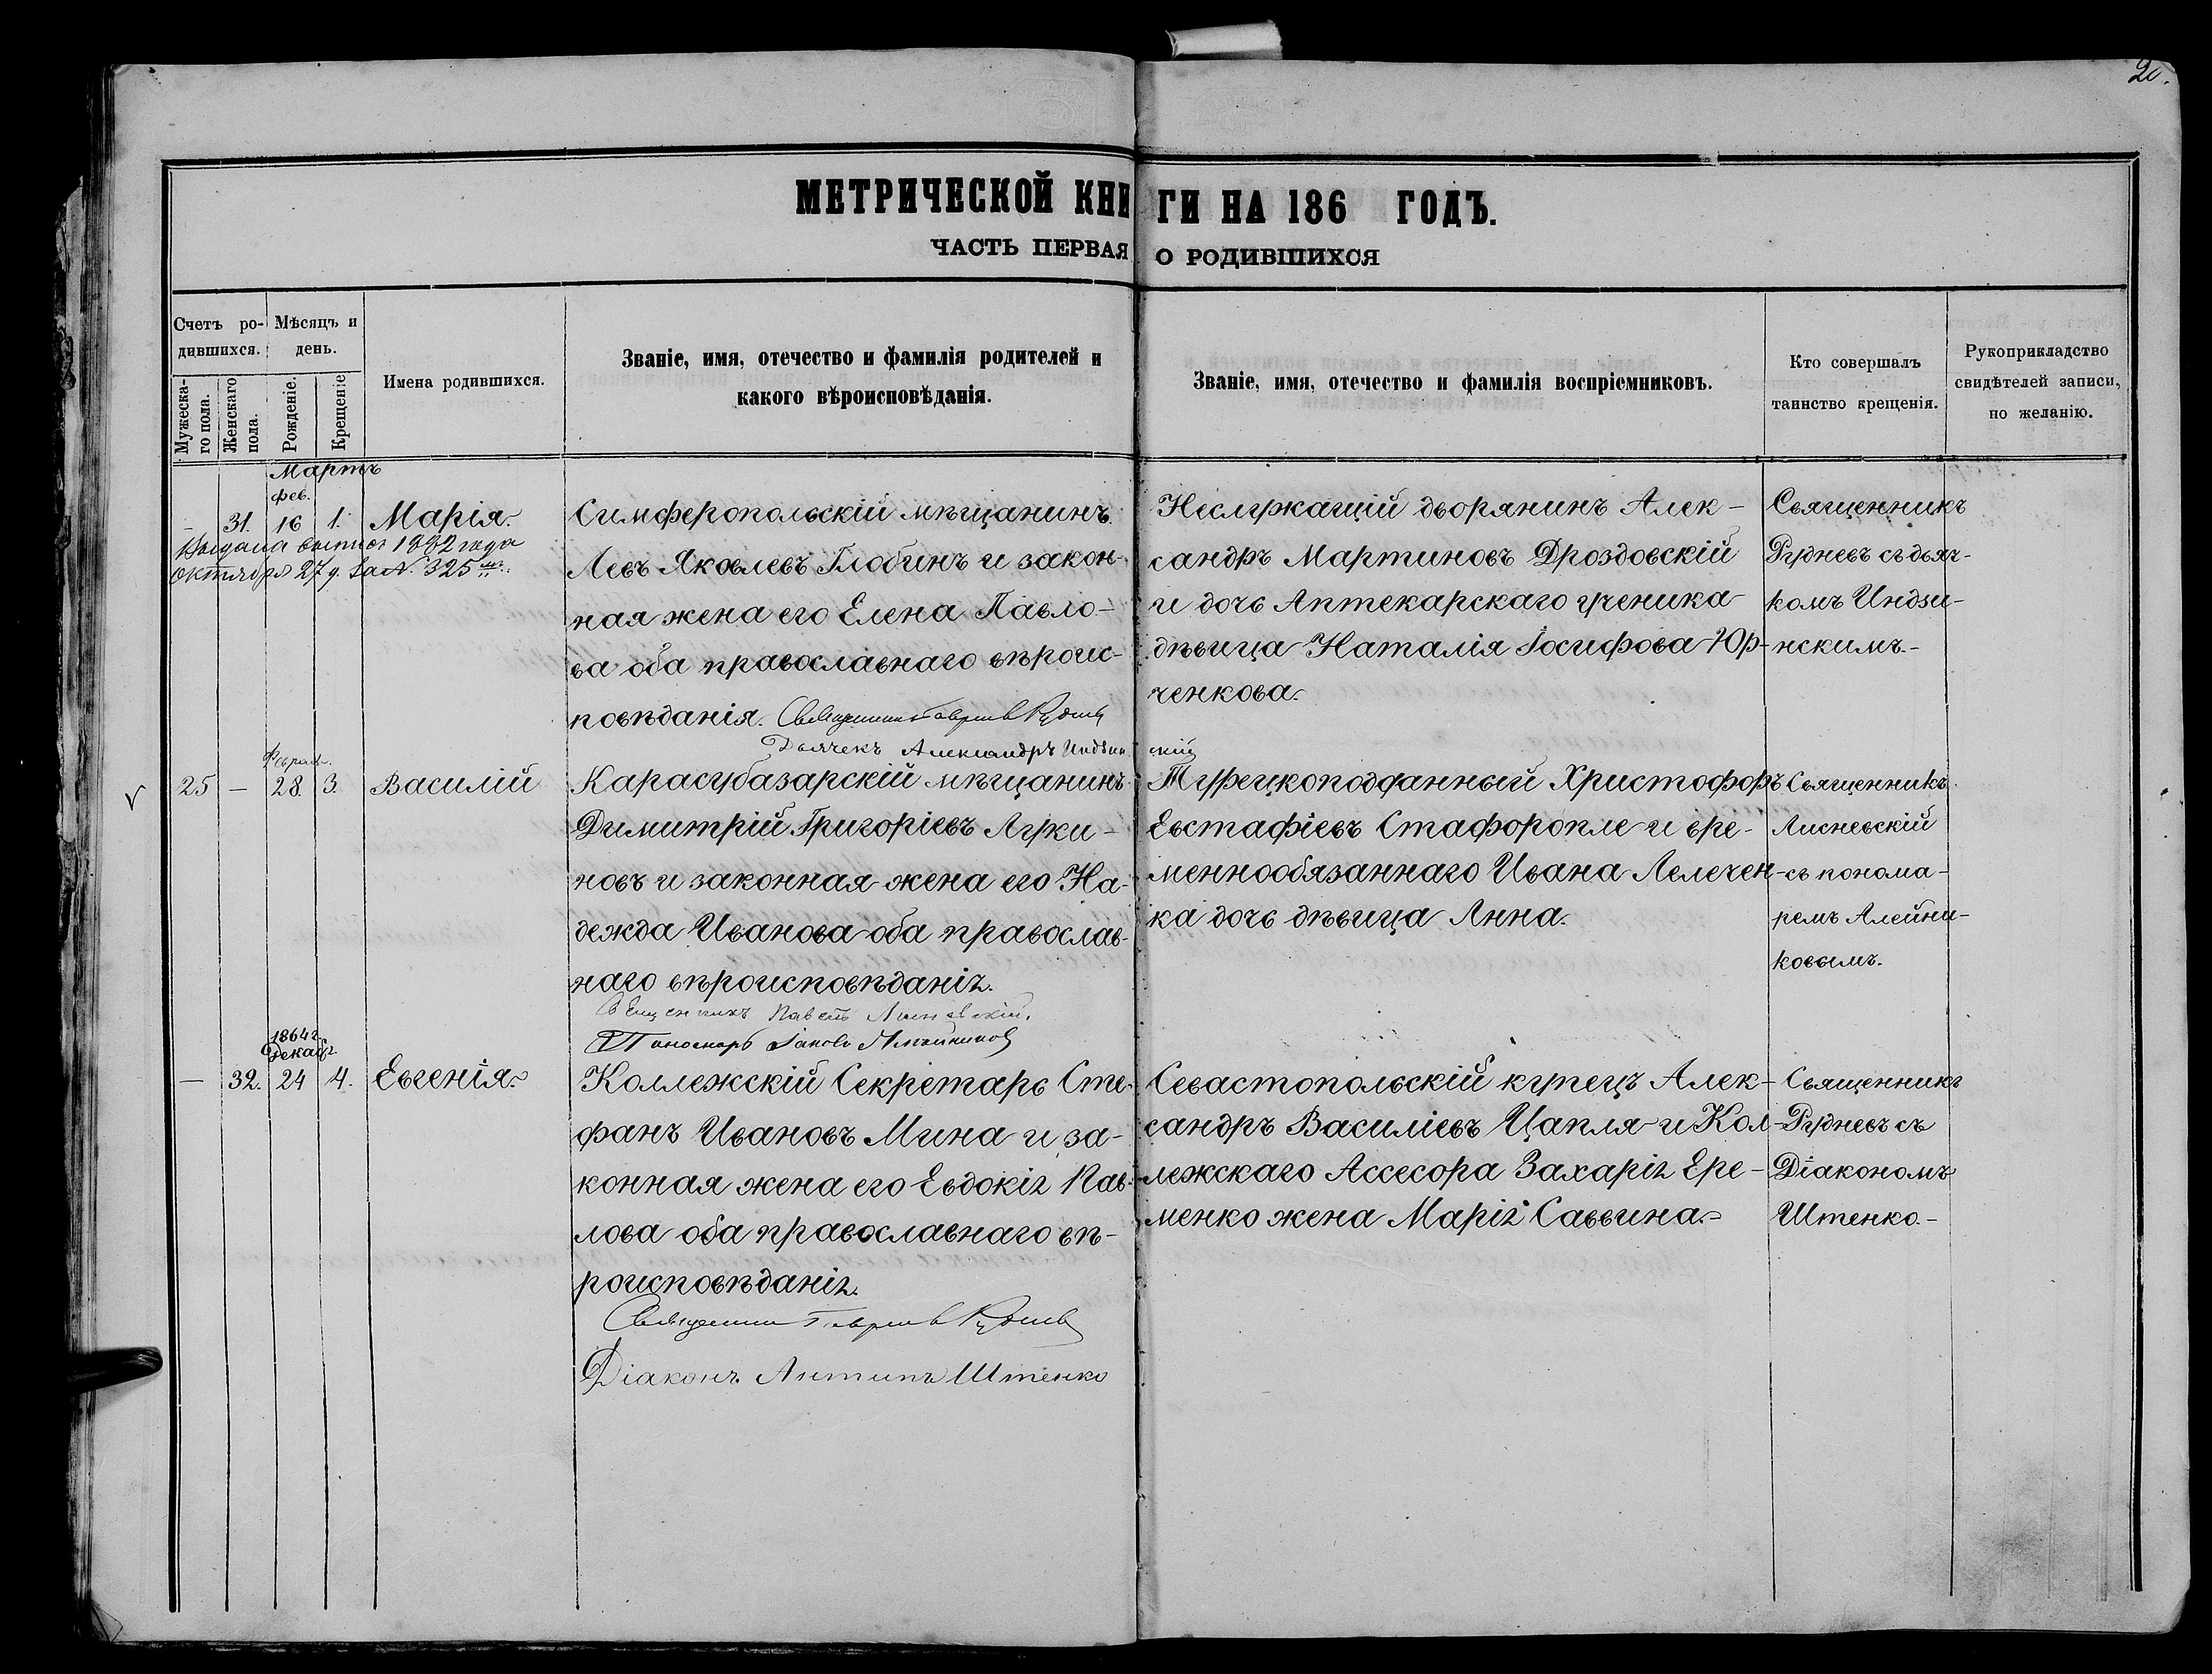 20.
МЕТРИЧЕСКОЙ КНИГИ НА 186 ГОДЪ.
ЧАСТЬ ПЕРВАЯ О РОДИВШИХСЯ
Счетъ ро-
дившихся.
Мужеска-
го пола.
Женскаго
пола.
Мѣсяцъ и
день.
Рожденіе.
Крещеніе
Имена родившихся.
Званіе, имя, отечество и фамилія родителей и
какого вѣроисповѣданія.
Званіе, имя, отечество и фамилія воспріемниковъ.
Кто совершалъ
таинство крещенія.
Рукоприкладство
свидѣтелей записи,
по желанію.
Мартъ
фев.
- 31. 16 1. Марія.
Выдана выпись 1882 года
октября 27 д. за №. 325
Симферопольскій мѣщанинъ
Левъ Яковлевъ Глобинъ и закон-
ная жена его Елена Павло-
ва оба православнаго вѣроис-
повѣданія. Священникъ Гавріилъ Рудневъ
Дьячекъ Александръ Индзинскій
Неслужащій дворянинъ Алек-
сандръ Мартиновъ Дроздовскій
и дочь Аптекарскаго ученика
дѣвица Наталія Іосифова Юр-
ченкова.
Священникъ
Рудневъ съ дьяч-
комъ Индзи-
нскимъ.-
Феврал.
25 - 28. 3. Василій
Карасубазарскій мѣщанинъ
Димитрій Григоріевъ Луки-
новъ и законная жена его На-
дежда Иванова оба православ-
наго вѣроисповѣданія.
Священникъ Павелъ Лисневскій.
Пономарь Іаковъ Алейниковъ
Турецкоподданный Христофоръ
Евстафіевъ Стафоропле и вре-
меннообязаннаго Ивана Лелечен-
ка дочь дѣвица Анна.
Священникъ
Лисневскій
съ понома-
ремъ Алейни-
ковымъ.
1864 г.
Декабр.
- 32. 24 4. Евгенія.
Коллежскій Секретарь Сте-
фанъ Ивановъ Мина и за-
конная жена его Евдокія Пав-
лова оба православнаго вѣ-
роисповѣданія.
Священникъ Гавріилъ Рудневъ
Діаконъ Антипъ Штенко
Севастопольскій купецъ Алек-
сандръ Василіевъ Цапля и Кол-
лежскаго Ассесора Захарія Ере-
менко жена Марія Саввина.-
Священникъ
Рудневъ съ
Діакономъ
Штенко.-